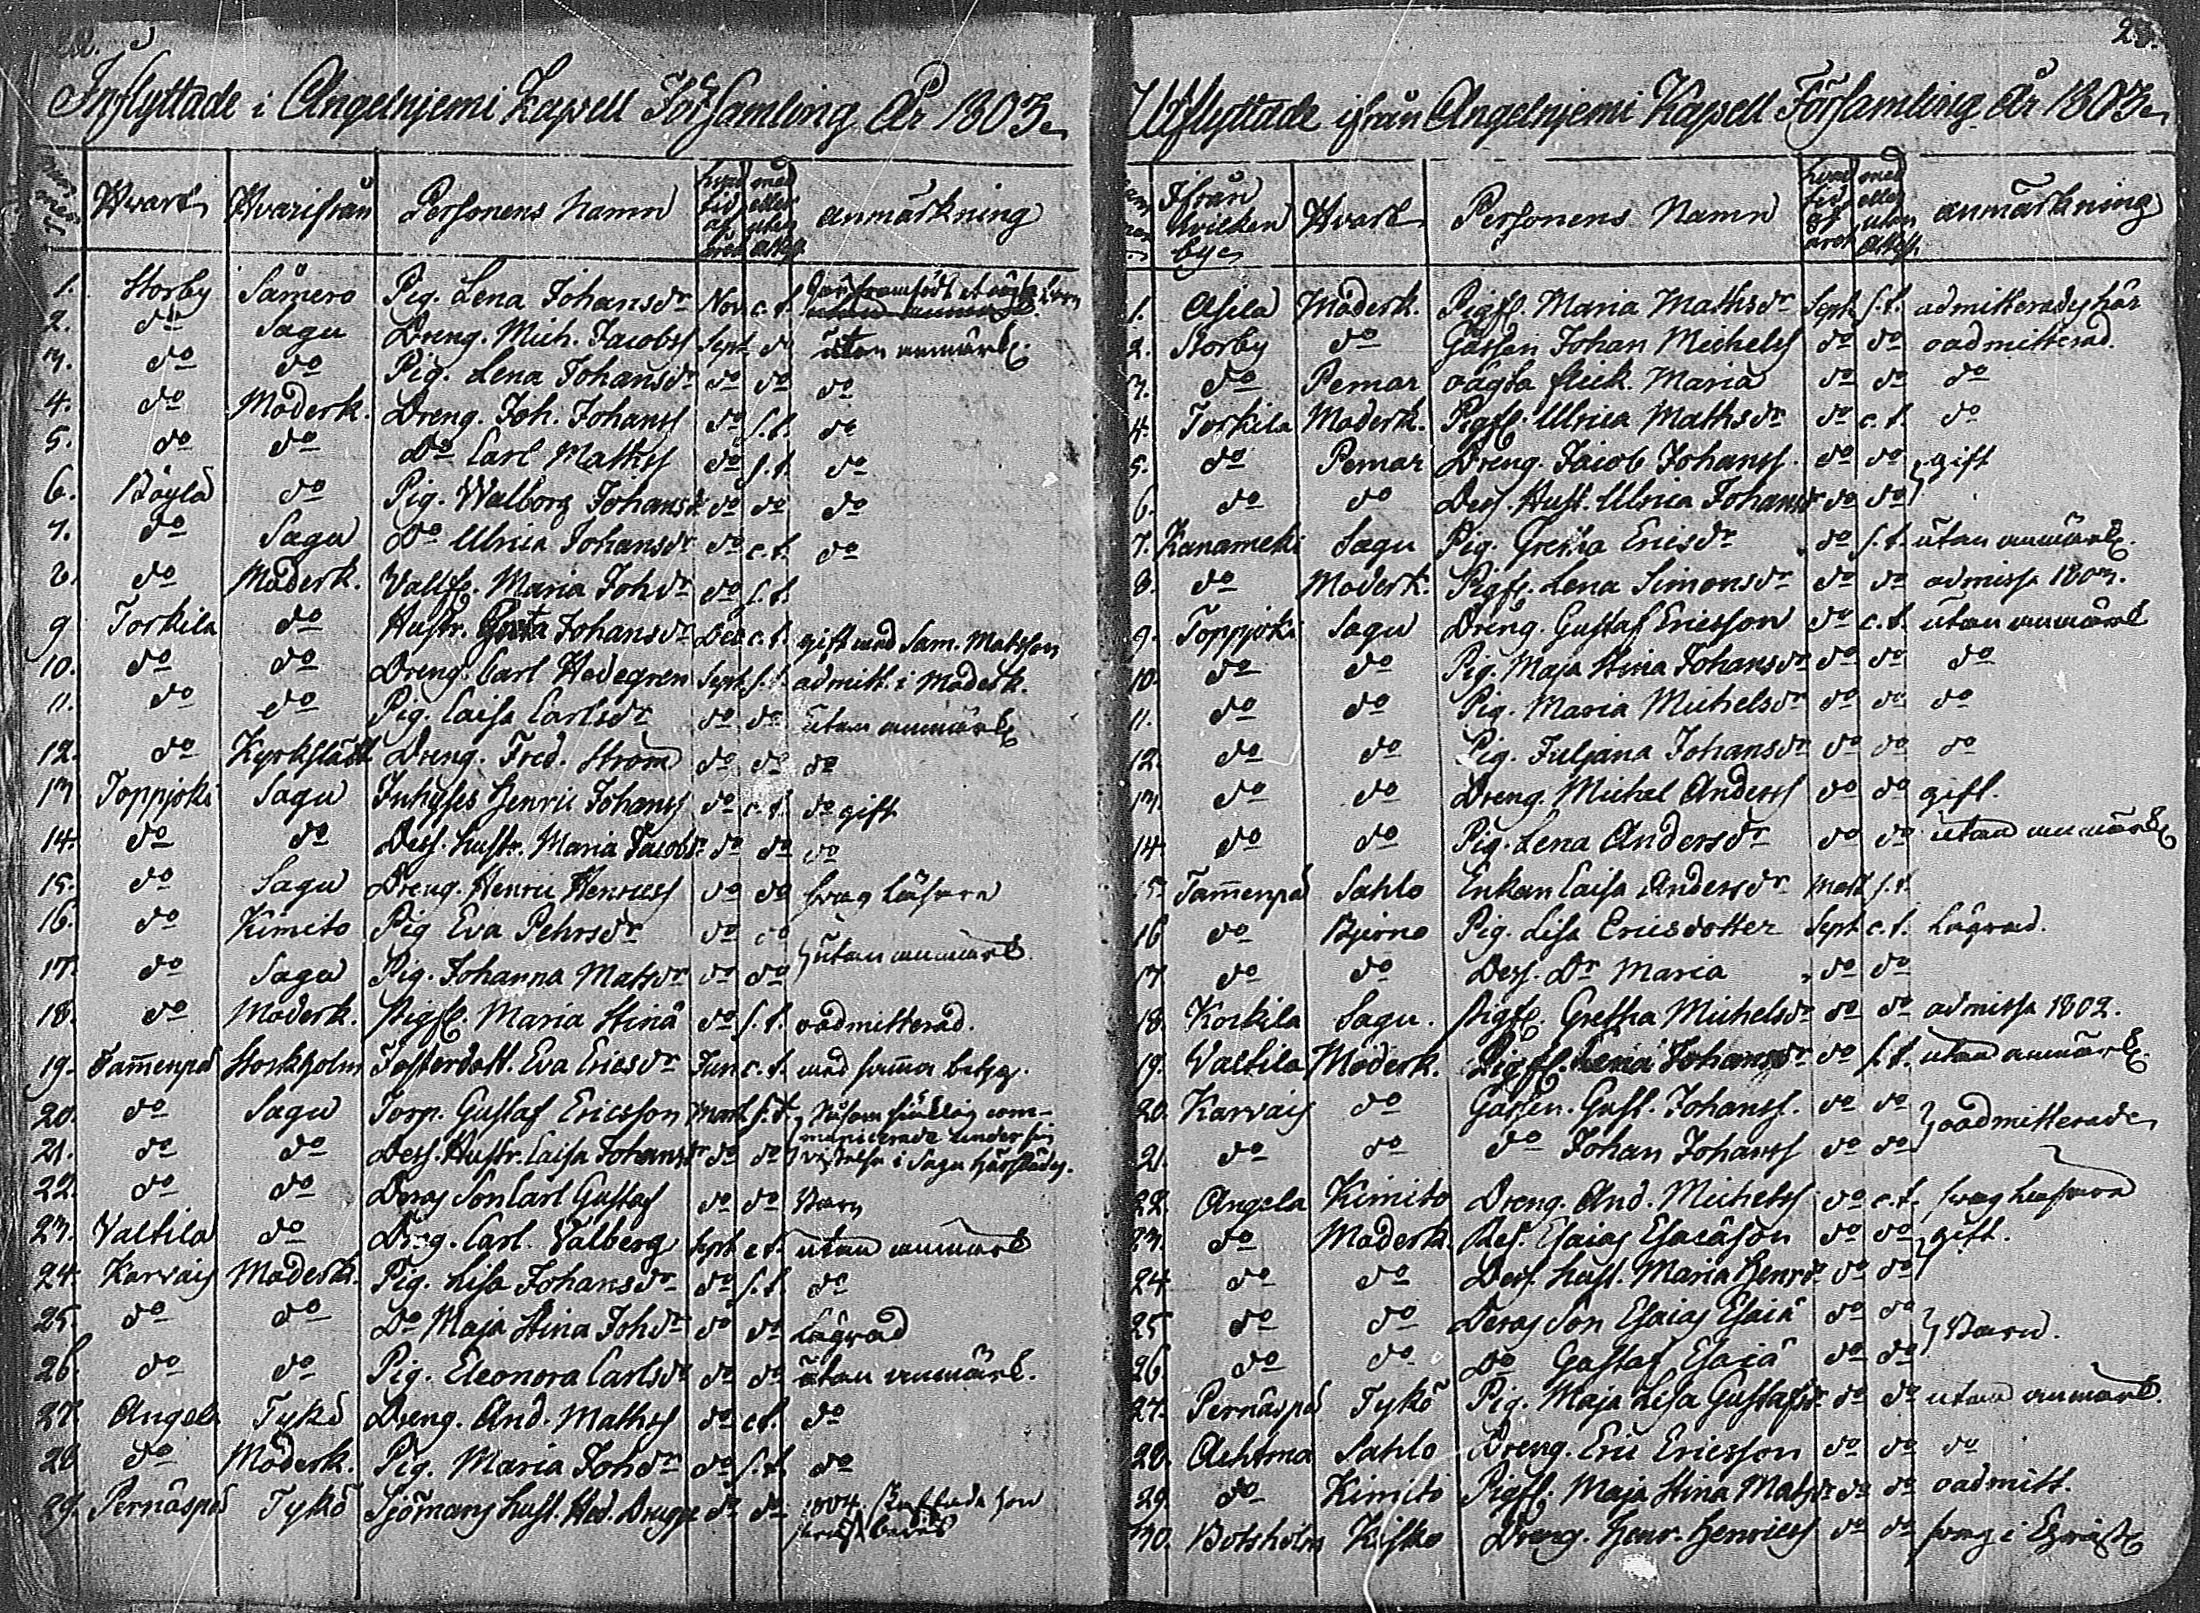 22.
Inflyttade i Angelnjemi Kapell Församling År 1803.
Hvart Hvarifrån Personens Namn hvad tid af året med eller utan attest anmärkning
1. Storby Sämero Pig. Lena Johansdr Nov. c.t.
2. do Sagu Dreng. Mich. Jacobss Sept do utan anmärk.
3. do do Pig. Lena Johansdr do do do
4. do Moderk. Dreng. Joh. Johanss do s.t. do
5. do do Do Carl Mathss do s.t. do
6. Böylä do Pig. Walborg Johansdr do do do
7. do Sagu Do Ulrica Johansdr do c.t. do
8. do Moderk. Vallfl. Maria Johdr do s.t.
9 Torkila do Hustr. Greta Johansdr Dec c.t. gift med Sam. Matsson
10. do do Dreng. Carl Hedegren Sept. s.t. admitt. i Moderk.
11. do do Pig. Caisa Carlsdr do do utan anmärk
12. do Kyrkslätt Dreng. Fred. Ström do do do
13 Toppjoki Sagu Inhyses Henric Johanss do c.t. do gift
14. do do Dess. hustr. Maria Jacobsdr do do do
15. do Sagu Dreng. Henric Henricss do do svag läsare
16. do Kimito Pig Eva Pehrsdr do do } utan anmärk.
17. do Sagu Pig. Johanna Matsdr do do
18. do Moderk. Pigfl. Maria Stina do s.t. oadmitterad.
19. Tam̄enpä Stockholm Fosterdott. Eva Ericsdr Jun c.t. med sam̄a betyg.
20. do Sagu Torp. Gustaf Ericsson Mart s.t. com-
21. do do Dess. Hustr. Caisa Johansdr do do municerade under sin vistelse i Sagu härstädes.
22. do do Deras Son Carl Gustaf do do Barn
23. Valtila do Dreng. Carl Valberg Sept c.t. utan anmärk
24. Karvais Moderk. Pig. Lisa Johansdr do s.t. do
25. do do Do Maja Stina Johdr do do lägrad
26. do do Pig. Eleonora Carlsdr do do utan anmärk.
27. Angela Tykö Dreng. And. Mathss do c.t. do
28 do Moderk. Pig. Maria Johdr do s.t. do
29. Pernäspä Tykö Sjömans hust. Hed. do do 1804. hon bevis
23.
Utflyttade ifrån Angelnjemi Kapell Församling År 1803.
Ifrån hvilken bye Hvart Personens Namn hvad tid af året med eller utan attest. anmärkning
1. Asila Moderk. Pigfl. Maria Mathsdr Sept s.t. admitterades här
2. Storby do Gossen Johan Michelss do do oadmitterad.
3. do Pemar oägta flick. Maria do do do
4. Torkila Moderk. Pigfl. Ulrica Mathsdr do c.t. do
5. do Pemar Dreng. Jacob Johanss. do do } gift
6. do do Dess. Hust. Ulrica Johansdr do do
7. Kanameki Sagu Pig. Gretha Ericsdr do s.t. utan anmärk.
8. do Moderk. Pigfl. Lena Simonsdr do do admissa 1803.
9. Toppjoki Sagu Dreng. Gustaf Ericsson do c.t. utan anmärk
10. do do Pig. Maja Stina Johansdr do do do
11. do do Pig. Maria Michelsdr do do do
12. do do Pig. Juliana Johansdr do do do
13. do do Dreng. Michel Anderss do do gift.
14 do do Pig. Lena Andersdr do do utan anmärk
15 Tam̄enpä Sahlo Enkan Caisa Andersdr Mart s.t.
16 do Bjerno Pig. Lisa Ericsdotter Sept c.t. lägrad.
17 do do Dess. Dr Maria do do
18. Kockila Sagu. Pigfl. Gretha Michelsdr do do admissa 1802.
19. Valtila Moderk. Pigfl. Lena Johansdr do s.t. utan anmärk.
20. Karvais do Gossen. Gust. Johanss. do do } oadmitterade
21. do do do Johan Johanss do do
22. Angela Kimito Dreng. And. Michelss do c.t. svag läsare
23. do Moderk. Esaias Esaiäson do do } gift.
24 do do Dess. hust. Maria Henrsdr do do
25 do do Deras Son Esaias Esaiä do do } Barn.
26. do do Do Gustaf Esaiä do do
27. Pernäspä Tykö Pig. Maja Lisa Gustafsdr do do utan anmärk.
28. Achtma Sahlo Dreng. Eric Ericsson do do do
29. do Kimito Pigfl. Maja Stina Matsdr do do oadmitt.
30. Botsholm Kisko Dreng. Henr. Henricss do do svag i